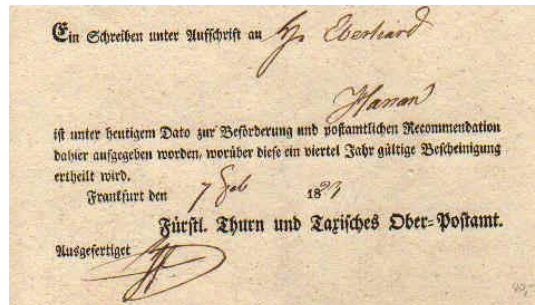 Ein Schreiben unter Aufschrift an Hr Eberhard
Hanau
ist unter heutigem Dato zur Beförderung und postamtlichen Recommendation
dahier aufgegeben worden, worüber diese ein viertel Jahr gültige Bescheinigung
ertheilt wird.
Frankfurt den 7 Feb 18
Fürstl. Thurn und Taxisches Ober-Postamt.
Ausgefertiget